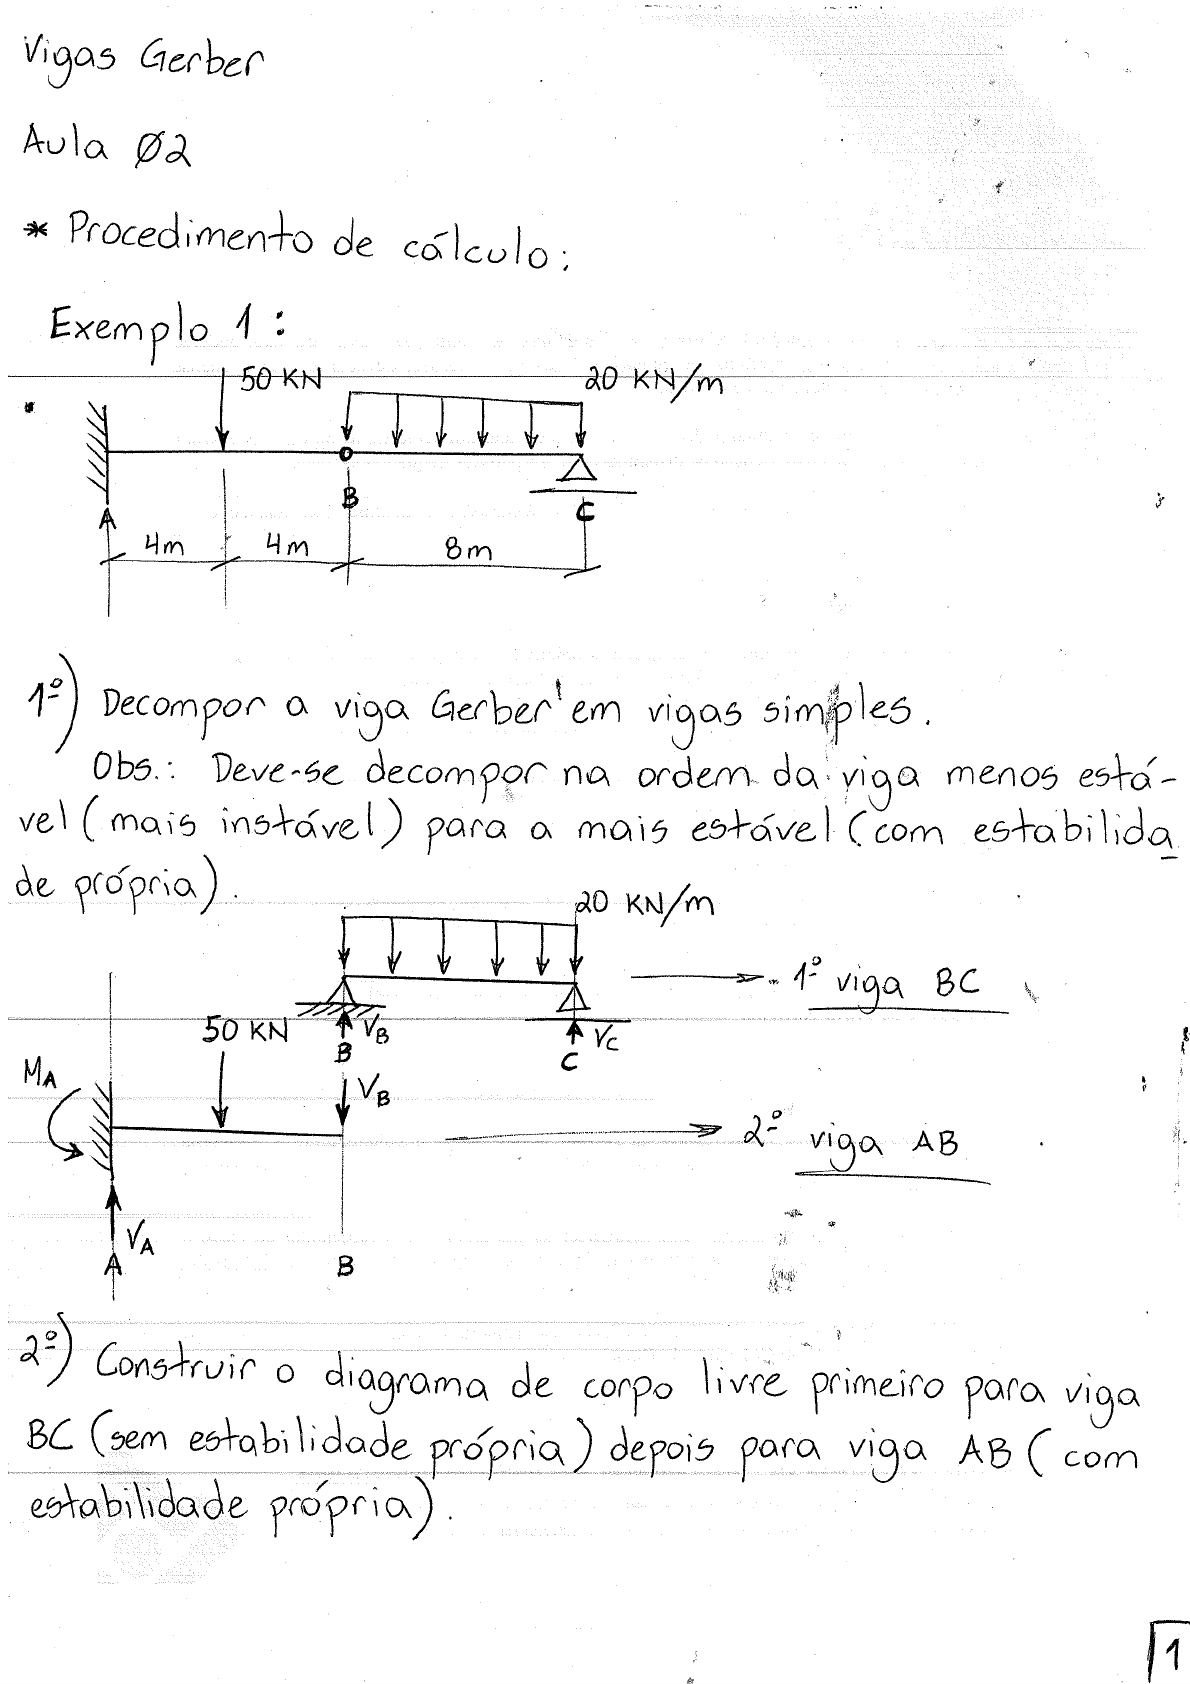 Vigas Gerber
Aula Ø2
* Procedimento de cálculo:
Exemplo 1:
50 KN
20 KN/m
B
C
A
4m
4m
8m
1º) Decompor a viga Gerber em vigas simples.
Obs.: Deve-se decompor na ordem da viga menos está-
vel (mais instável) para a mais estável (com estabilida
de própria).
20 KN/m
1º viga BC
50 KN
VB
VC
B
C
MA
VB
2º viga AB
VA
A
B
2º) Construir o diagrama de corpo livre primeiro para viga
BC (sem estabilidade própria) depois para viga AB (com
estabilidade própria).
1